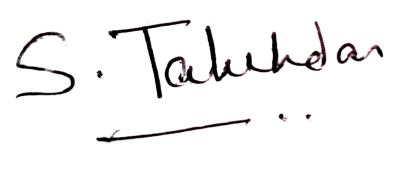 S. Talukdar